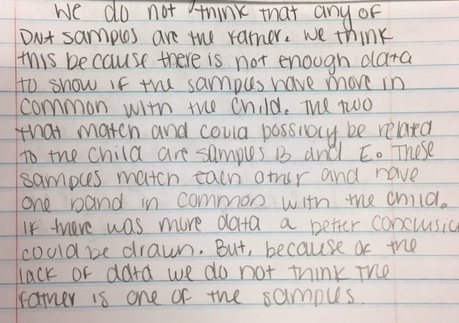 We do not think that any of
DNA samples are the father. We think
this because there is not enough data
to show if the samples have more in
common with the child. The two
that match and could possibly be related
to the child are samples B and E. These
samples match each other and have
one band in common with the child.
If there was more data a better conclusio
could be drawn. But, because of the
lack of data we do not think the
father is one of the samples.